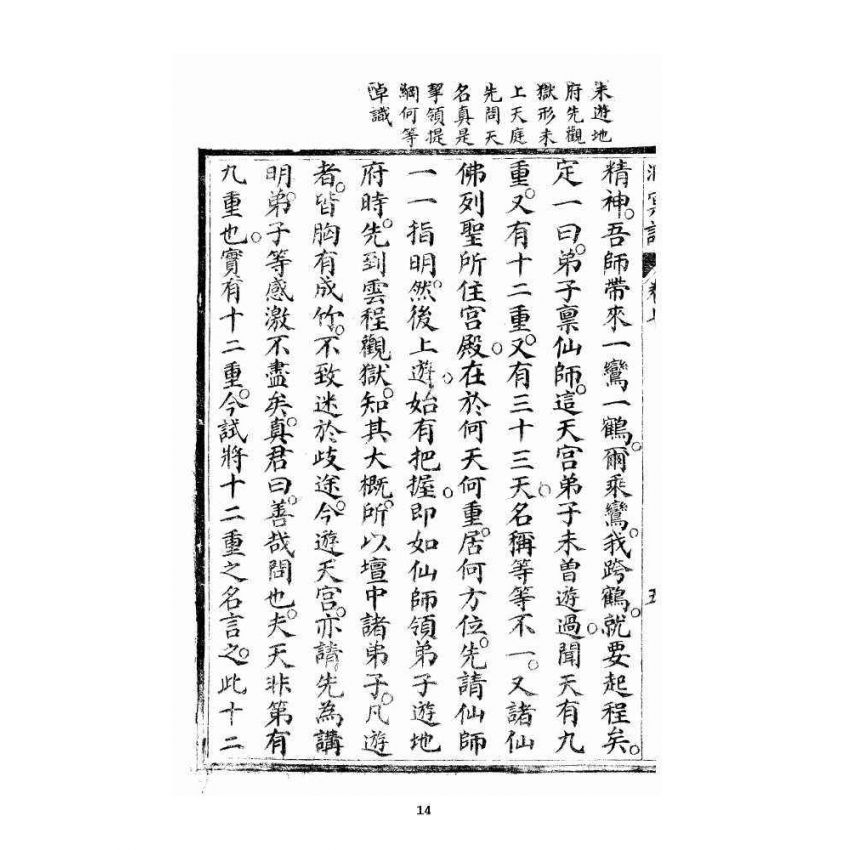 未遊地
府先觀
獄形未
上天庭
先問天
名真是
挈領提
綱何等
卓識
洞冥記 卷上 五
精神。吾師帶來一鸞一鶴。爾乘鸞。我跨鶴。就要起程矣。
定一曰。弟子禀仙師。這天宫弟子未曾遊過。聞天有九
重。又有十二重。又有三十三天。名稱等等不一。又諸仙
佛列聖所住宫殿。在於何天何重。居何方位。先請仙師
一一指明。然後上遊。始有把握。即如仙師領弟子遊地
府時。先到雲程觀獄。知其大概。所以壇中諸弟子。凡遊
者。皆胸有成竹。不致迷於歧途。今遊天宫。亦請先為講
明。弟子等感激不盡矣。真君曰。善哉問也。夫天非第有
九重也。實有十二重。今試將十二重之名言之。此十二
14